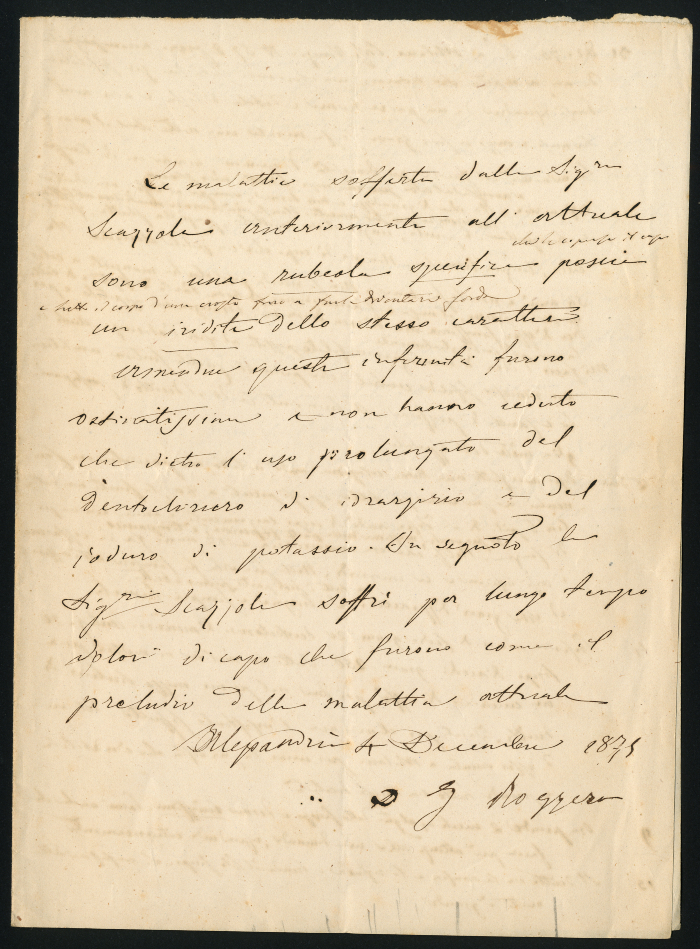 Le malattie sofferte dalla Sig.ra
Scazzola anteriormente all' attuale
che le coprì il capo
sono una rubeola specifica poscia
e tutto il corpo d'una crosta fino a farle diventare
un iridite dello stesso carattere
amendue queste infermità furono
ostinatissime e non hanno ceduto
che dietro l'uso prolungato del
Dentocloruro di idrargirio e del
ioduro di potassio. In seguito la
Sig.ra Scazzola soffrì per lungo tempo
dolori di capo che furono come il
preludio della malattia attuale
Alessandria 4 Decembre 1875
D G Roggero